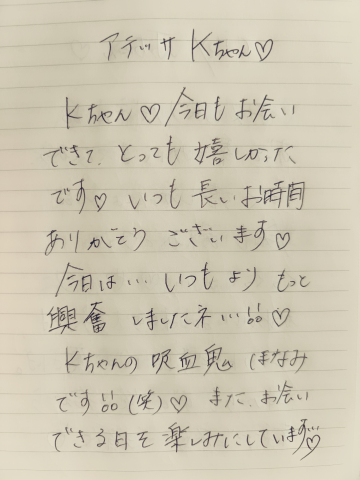 アデッサ Kちゃん♡
Kちゃん♡ 今日も お会い
できて、とっても 嬉しかった
です♡ いつも 長い お時間
ありがとう ございます♡
今日は… いつも より もっと
興奮 しましたネ…♡
Kちゃんの 吸血鬼 ほなみ
です (笑)♡ また、お会い
できる日を 楽しみにしています…♡